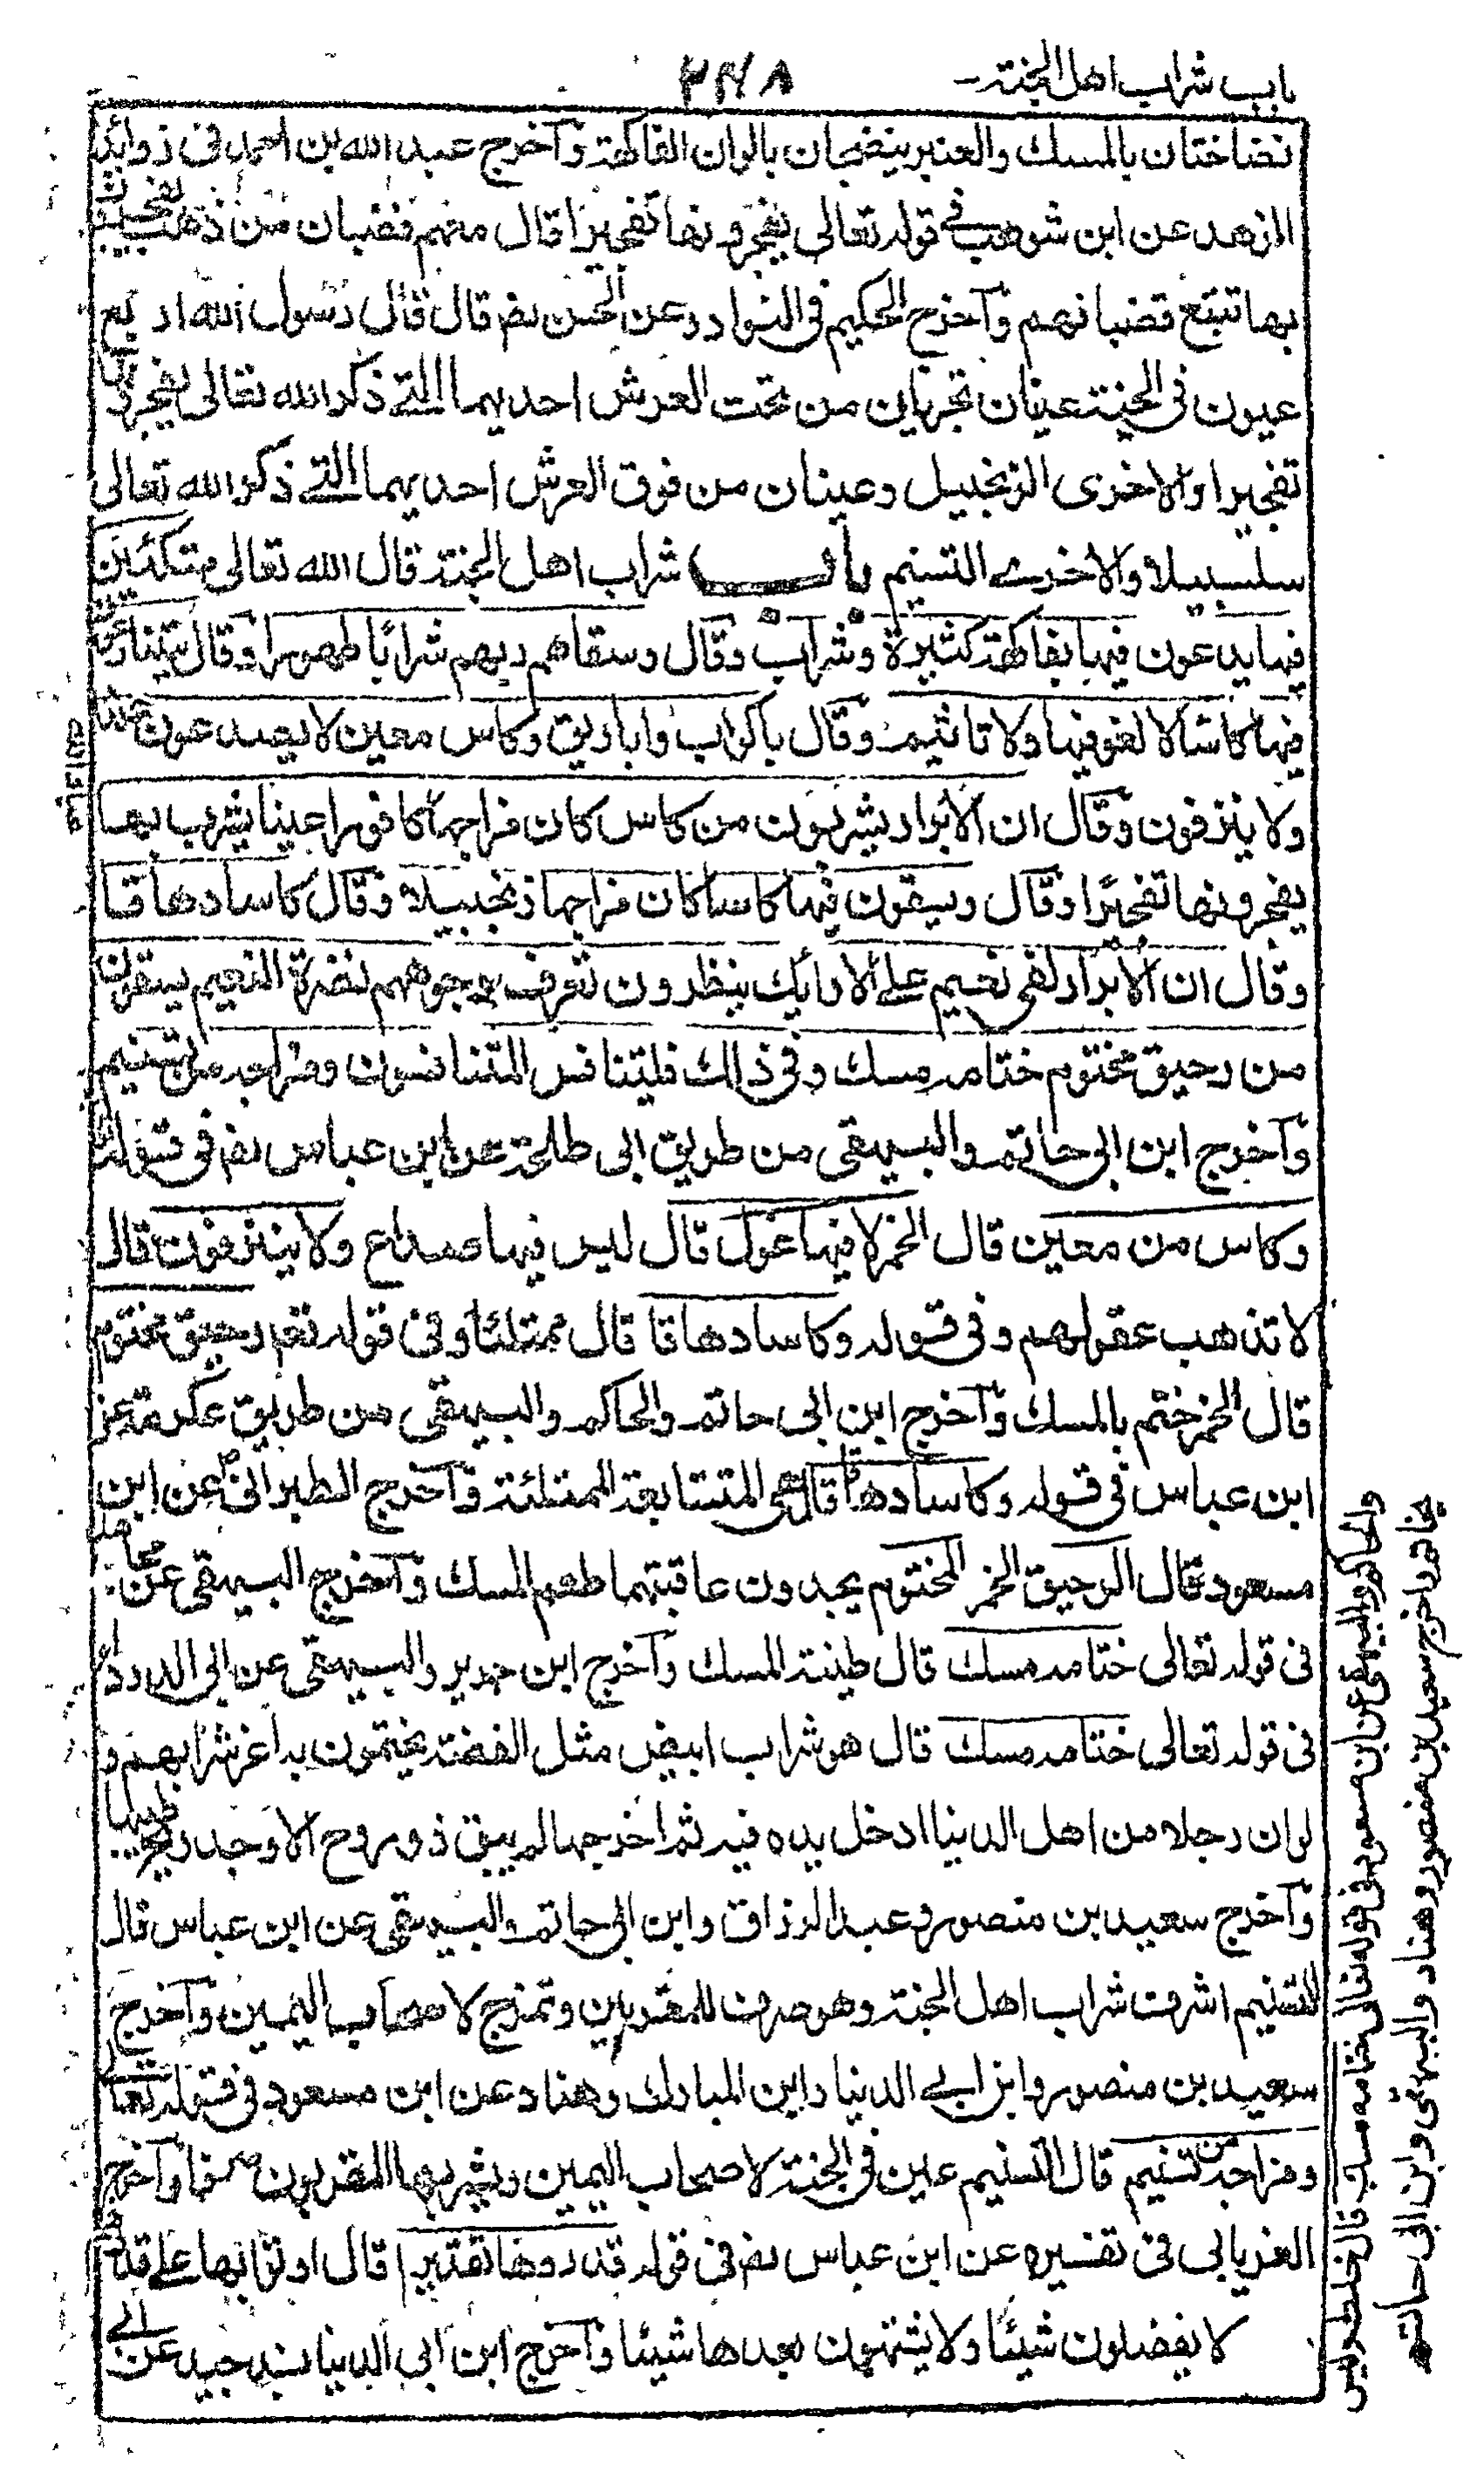 باب شراب اهل الجنة
٢٦٨
نضاختان بالمسك والعنبر ينضخان بالوان الفاكهة وآخرج عبد الله بن احمد في زوائد
الزهد عن ابن شوذب في قوله تعالى يفجرونها تفجيرا قال معهم قضبان من ذهب يفجرون
بها تتبع قضبانهم وآخرج الحكيم في النوادر عن الحسن رض قال قال رسول الله اربع
عيون في الجنة عينان تجريان من تحت العرش احديهما التي ذكر الله تعالى يفجرونها
تفجيرا والاخرى الزنجبيل وعينان من فوق العرش احديهما التي ذكر الله تعالى
سلسبيلا والاخرى التسنيم باب شراب اهل الجنة قال الله تعالى متكئين
فيها يدعون فيها بفاكهة كثيرة وشراب وقال وسقاهم ربهم شرابا طهورا وقال يتنازعون
فيها كاسا لا لغو فيها ولا تاثيم وقال باكواب واباريق وكاس معين لا يصدعون عنها
ولا ينزفون وقال ان الابرار يشربون من كاس كان مزاجها كافورا عينا يشرب بها
عباد الله
يفجرونها تفجيرا وقال ويسقون فيها كاسا كان مزاجها زنجبيلا وقال كاسا دهاقا
وقال ان الابرار لفي نعيم على الارايك ينظرون تعرف في وجوههم نضرة النعيم يسقون
من رحيق مختوم ختامه مسك وفي ذالك فليتنافس المتنافسون ومزاجه من تسنيم
وآخرج ابن ابي حاتم والبيهقي من طريق ابي طلحة عن ابن عباس رض في قوله
وكاس من معين قال الخمر لا فيها غول قال ليس فيها صداع ولا ينزفون قال
لا تذهب عقولهم وفي قوله وكاسا دهاقا قال ممتلئا وفي قوله تعم رحيق مختوم
قال الخمر ختم بالمسك وآخرج ابن ابي حاتم والحاكم والبيهقي من طريق عكرمة عن
ابن عباس في قوله وكاسا دهاقا قال هي المتتابعة الممتلئة وآخرج الطبراني عن ابن
مسعود قال الرحيق الخمر المختوم يجدون عاقبتها طعم المسك وآخرج البيهقي عن مجاهد
في قوله تعالى ختامه مسك قال طينته المسك وآخرج ابن جرير والبيهقي عن ابي الدرداء
في قوله تعالى ختامه مسك قال هو شراب ابيض مثل الفضة يختمون به اخر شرابهم و
لو ان رجلا من اهل الدنيا ادخل يده فيه ثم اخرجها لم يبق ذو روح الا وجد ريح طيبها
وآخرج سعيد بن منصور وعبد الرزاق وابن ابي حاتم والبيهقي عن ابن عباس قال
التسنيم اشرف شراب اهل الجنة وهو صرف للمقربين وتمزج لاصحاب اليمين وآخرج
سعيد بن منصور وابن ابي الدنيا وابن المبارك وهناد عن ابن مسعود في قوله تعالى
ومزاجه من تسنيم قال التسنيم عين في الجنة لاصحاب اليمين ويشربها المقربون صرفا وآخرج
الفريابي في تفسيره عن ابن عباس رض في قوله قدروها تقديرا قال اوتوا بها على قدر
لا يفضلون شيئا ولا يشتهون بعدها شيئا وآخرج ابن ابي الدنيا بسند جيد عن ابي
والحاكم والبيهقي عن ابن مسعود في قوله تعالى ختامه مسك قال خلط وليس
بخاتم واخرج سعيد بن منصور وهناد والبيهقي وابن ابي حاتم